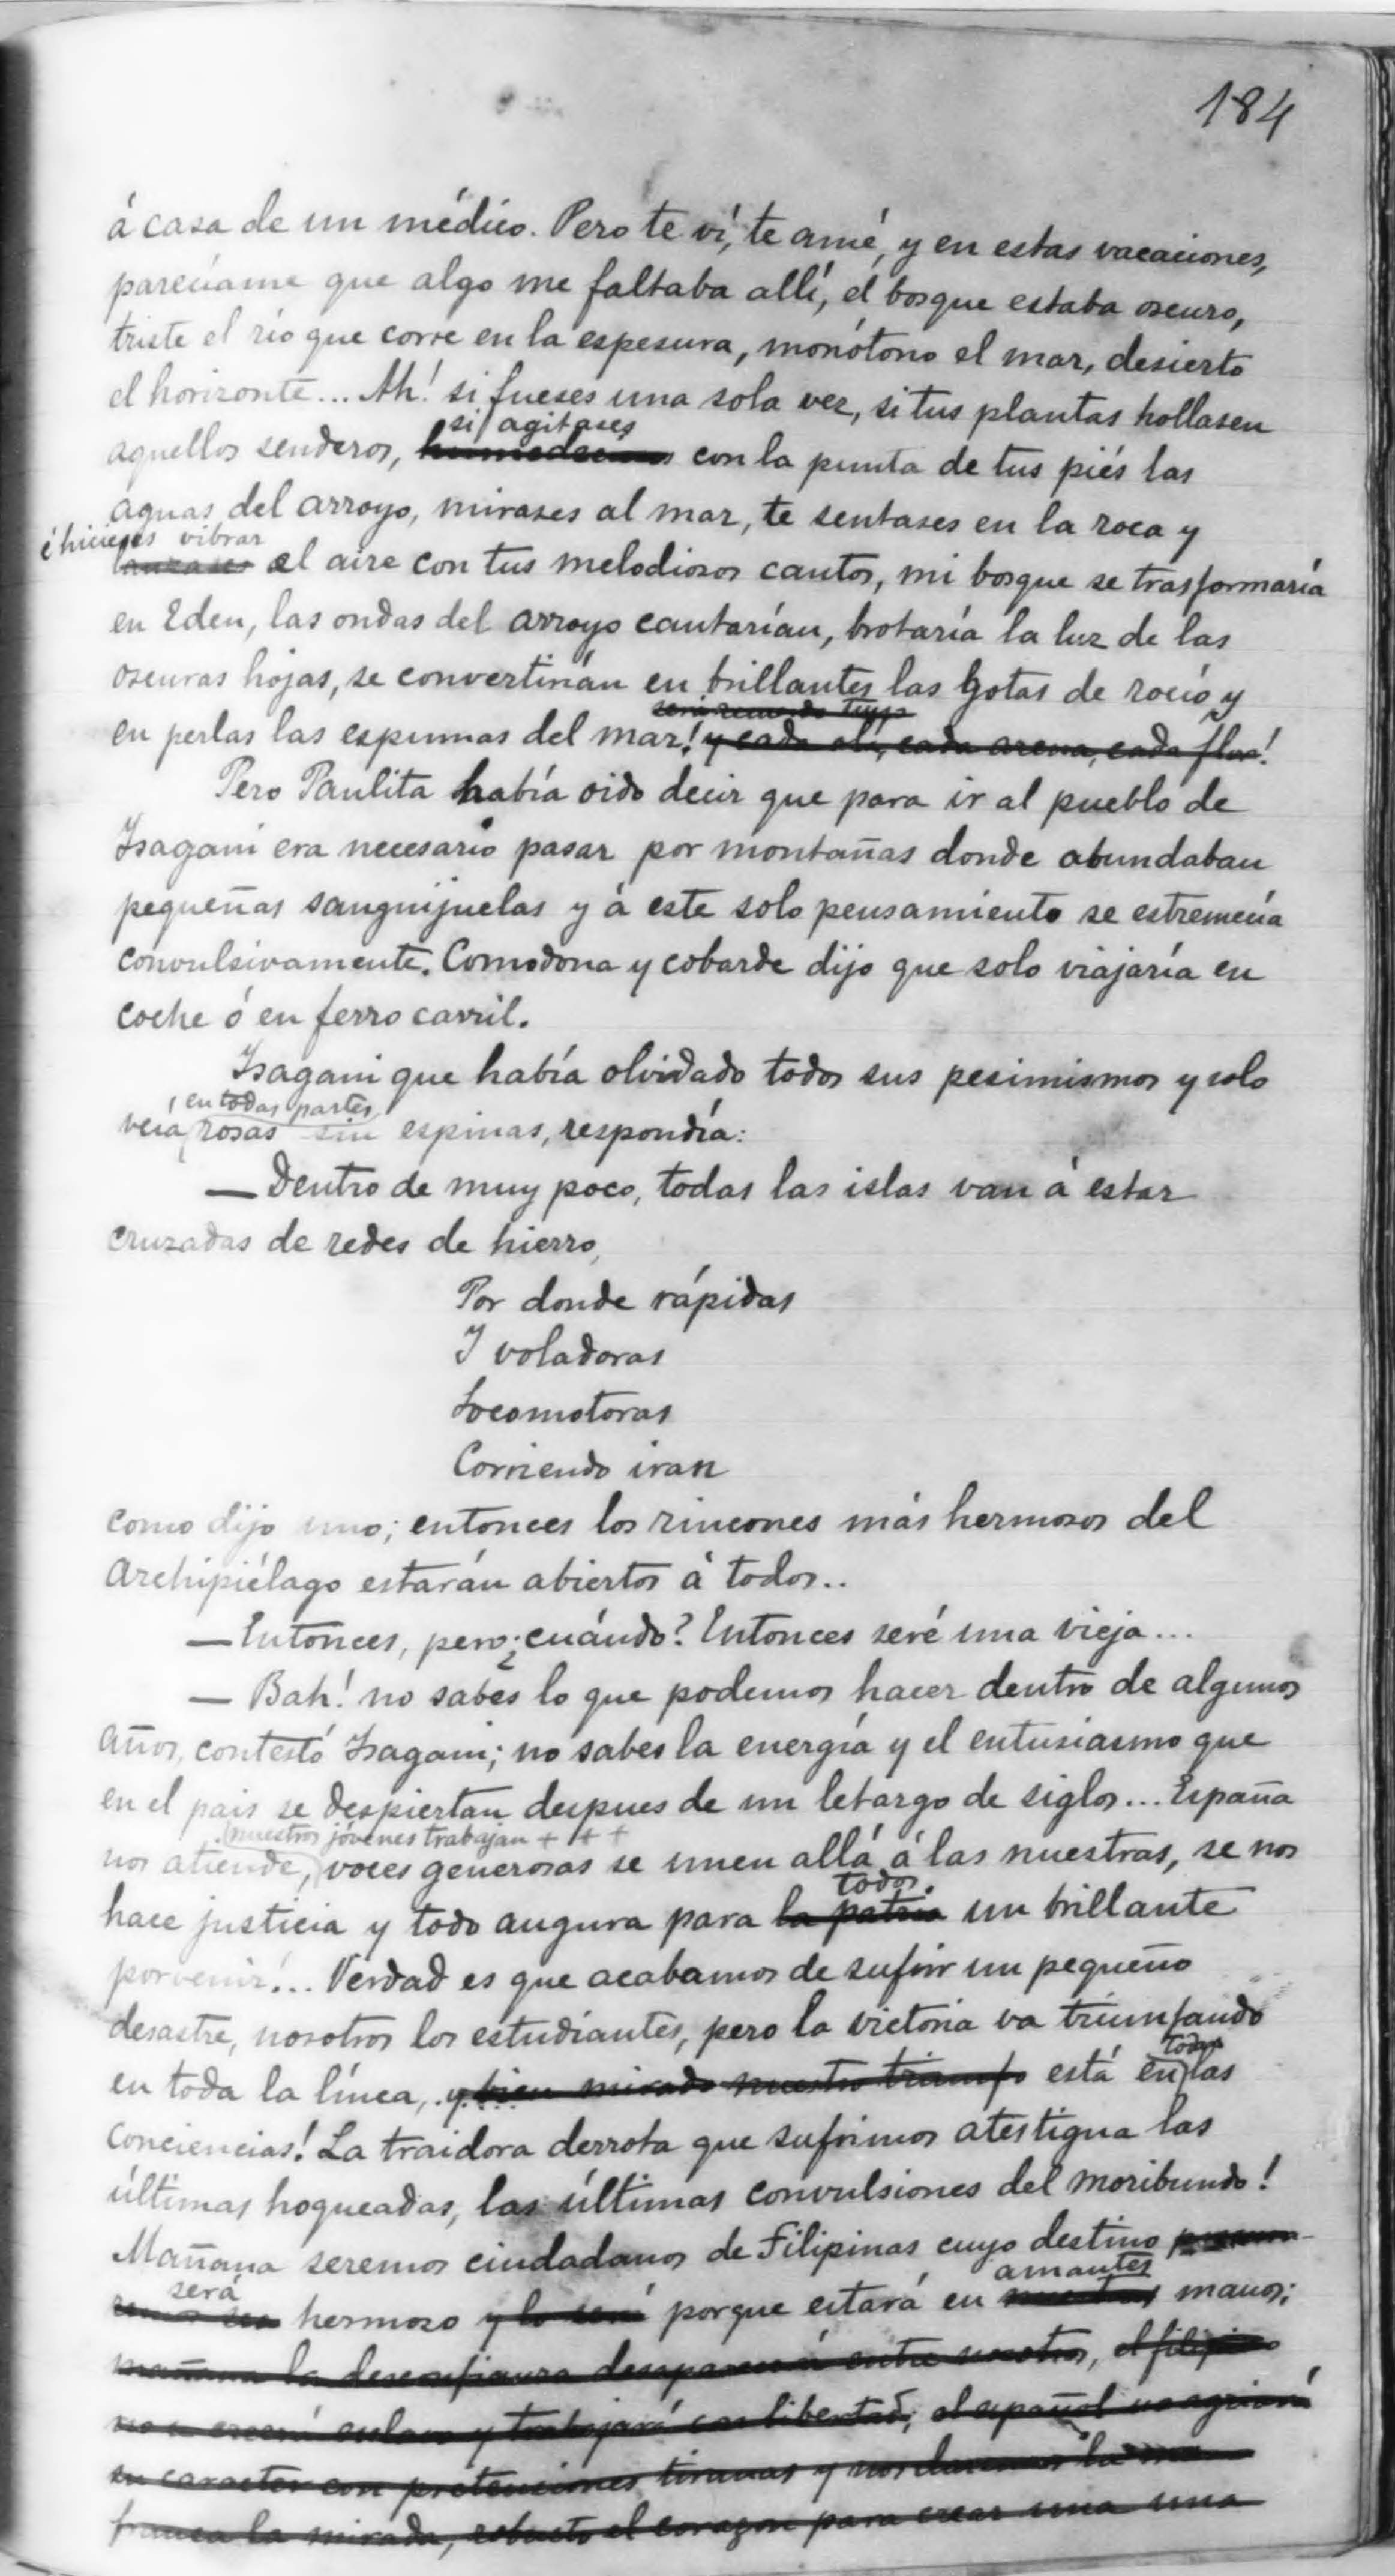 184
á casa de un médico. Pero te ví, te amé, y en estas vacaciones,
parecíame que algo me faltaba allí, el bosque estaba oscuro,
triste el río que corre en la espesura, monótono el mar, desierto
el horizonte... Ah! si fueses una sola vez, si tus plantas hollasen
si agitases
aquellos senderos, con la punta de tus piés las
aguas del arroyo, mirases al mar, te sentases en la roca y
é hicieses vibrar
lanzases el aire con tus melodiosos cantos, mi bosque se trasformaría
en Eden, las ondas del arroyo cantarían, brotaría la luz de las
oscuras hojas, se convertirían en brillantes las gotas de rocío y
será recuerdo tuyo
en perlas las espumas del mar! y cada ola, cada arena, cada flor!
Pero Paulita había oido decir que para ir al pueblo de
Isagani era necesario pasar por montañas donde abundaban
pequeñas sanguijuelas y á este solo pensamiento se estremecía
convulsivamente. Comodona y cobarde dijo que solo viajaría en
coche ó en ferro carril.
Isagani que había olvidado todos sus pesimismos y solo
en todas partes
veía rosas sin espinas, respondía:
— Dentro de muy poco, todas las islas van á estar
cruzadas de redes de hierro,
Por donde rápidas
Y voladoras
Locomotoras
Corriendo iran
como dijo uno; entonces los rincones más hermosos del
Archipiélago estarán abiertos á todos..
— Entonces, pero ¿cuándo? Entonces seré una vieja...
— Bah! no sabes lo que podemos hacer dentro de algunos
años, contestó Isagani; no sabes la energía y el entusiasmo que
en el pais se despiertan despues de un letargo de siglos... España
nuestros jóvenes trabajan + + +
nos atiende, voces generosas se unen allá á las nuestras, se nos
todos
hace justicia y todo augura para la patria un brillante
porvenir!... Verdad es que acabamos de sufrir un pequeño
desastre, nosotros los estudiantes, pero la victoria va triunfando
todas
en toda la línea, y bien mirado nuestro triunfo está en las
conciencias! La traidora derrota que sufrimos atestigua las
últimas boqueadas, las últimas convulsiones del moribundo!
Mañana seremos ciudadanos de Filipinas cuyo destino
será amantes
hermoso y lo será porque estará en nuestras manos;
mañana la desconfianza desaparecerá entre nosotros, el filipino
no se creerá esclavo y trabajará con libertad; el español no agriará
su caracter con pretenciones tiranas y nos daremos la mano
franca la mirada, robusto el corazon para crear una una